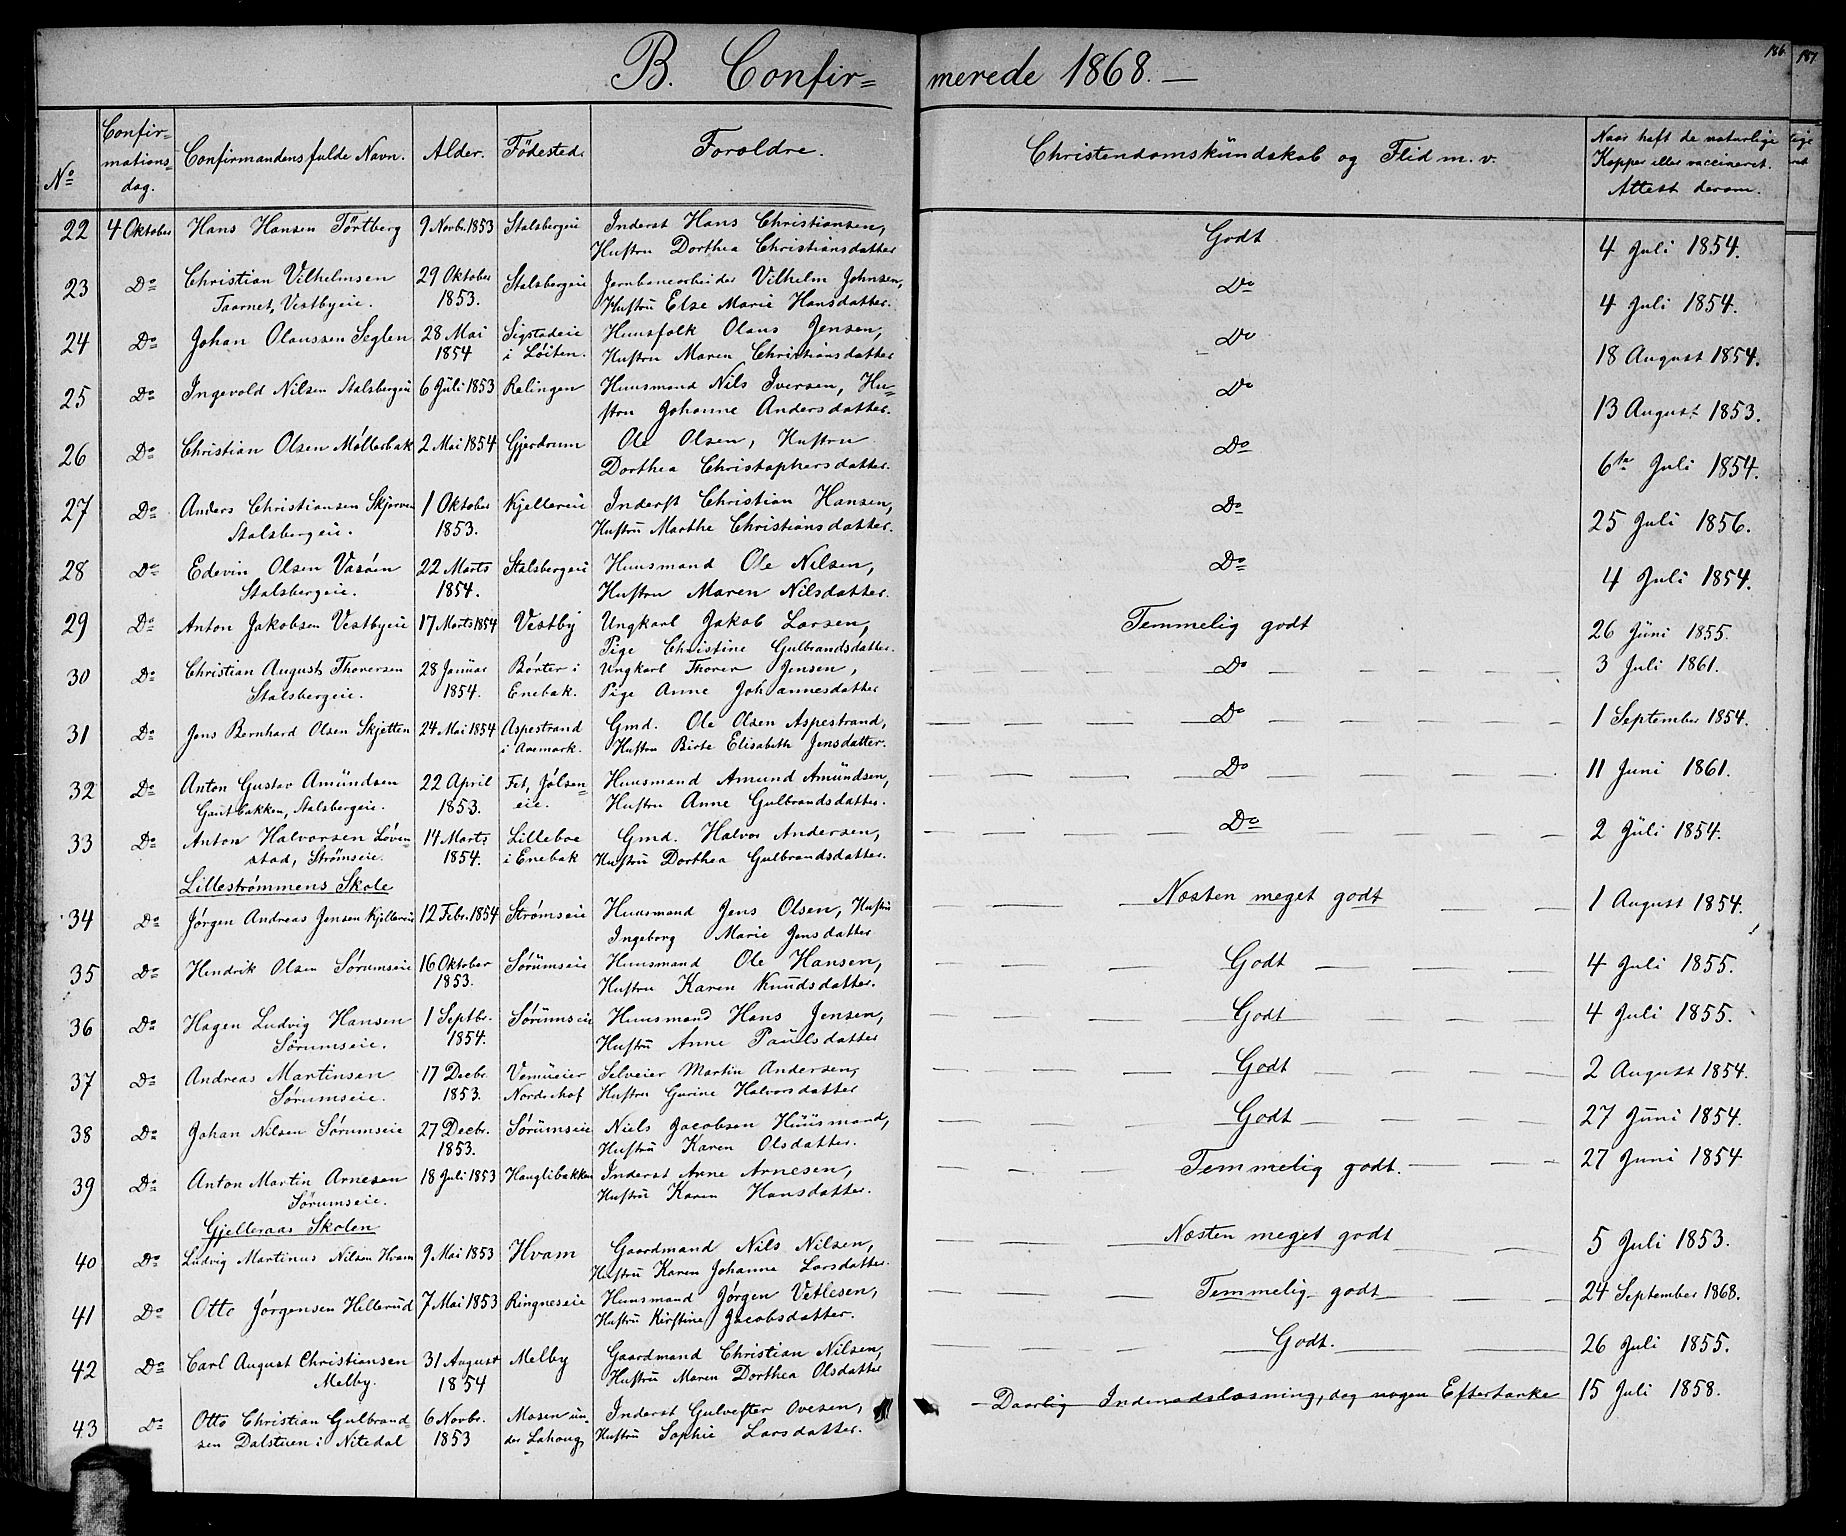 186
187
B. Confir= merede 1868. —
No
Confir= mations dag.
Confirmandens fulde Navn.
Alder.
Födested.
Foroldre.
Christendomskundskab og Flid m. v.
Naar haft de naturlige Kopper eller vaccineret. Attest derom.
22 4 Oktober Hans Hansen Törtberg 9 Novbr. 1853 Stalsbergeie Inderst Hans Christiansen, Godt. 4 Juli 1854.
Hustru Dorthea Christiansdatter
23 Do Christian Vilhelmsen 29 Oktober Stalsbergeie Jernbanearbeider Vilhelm Johnsen, Do 4 Juli 1854.
Taarnet, Vestbyeie. 1853. Hustru Else Marie Hansdatter.
24 Do Johan Olaussen Seglen 28 Mai Sigstadeie Huusfolk Olaus Jensen, Do 18 August 1854.
1854 i Löiten. Hustru Maren Christiansdatter
25 Do Ingevold Nilsen Stalsbergeie 6 Juli 1853 Relingen Huusmand Nils Iversen, Hu= Do 13 August 1853.
stru Johanne Andersdatter.
26 Do Christian Olsen Møllerbak 2 Mai 1854 Gjerdrum Ole Olsen, Hustru Do 6te Juli 1854.
Dorthea Christophersdatter.
27 Do Anders Christiansen Skjerven 1 Oktober Kjellereie Inderst Christian Hansen, Do 25 Juli 1856.
Stalsbergeie. 1853. Hustru Marthe Christiansdatter.
28 Do Edevin Olsen Vasöen 22 Marts Stalsbergeie Huusmand Ole Nilsen, Do 4 Juli 1854.
Stalsbergeie. 1854. Hustru Maren Nilsdatter.
29 Do Anton Jakobsen Vestbyeie 17 Marts 1854 Vestby Ungkarl Jakob Larsen, Temmelig godt 26 Juni 1855.
Pige Christine Gulbrandsdatter.
30 Do Christian August Thoversen 28 Januar Börter i Ungkarl Thorer Jensen, Do 3 Juli 1861.
Stalsbergeie. 1854. Enebak. Pige Anne Johannesdatter
31 Do Jens Bernhard Olsen Skjetten 24 Mai 1854 Aspestrand Gmd. Ole Olsen Aspestrand, Do 1 September 1854.
i Aremark. Hustru Birte Elisabeth Jensdatter.
32 Do Anton Gustav Amundsen 22 April Fet, Jølsen= Huusmand Amund Amundsen, Do 11 Juni 1861.
Gautbakken, Stalsbergeie. 1853. eie. Hustru Anne Gulbrandsdatter.
33 Do Anton Halvorsen Löven 14 Marts Lilleboe Gmd. Halvor Andersen, Do 2 Juli 1854.
stad, Strömseie. 1854. i Enebak Hustru Dorthea Gulbrandsdatter.
Lilleströmmens Skole
34 Do Jörgen Andreas Jensen Kjellereie 12 Febr. 1854 Strömseie Huusmand Jens Olsen, Hustru Nosten meget godt 1 August 1854.
Ingeborg Marie Jensdatter
35 Do Hendrik Olsen Sörumseie 16 Oktober Sörumseie Huusmand Ole Hansen, Godt 4 Juli 1855.
1853. Hustru Karen Knudsdatter.
36 Do Hagen Ludvig Hansen 1 Septbr. Sörumseie Huusmand Hans Jensen, Godt 4 Juli 1855.
Sörumseie. 1854. Hustru Anne Paulsdatter
37 Do Andreas Martinsen 17 Decbr. Vemueier Selveier Martin Andersen, Godt 2 August 1854.
Sörumseie. 1853. Nordrehof Hustru Gurine Halvorsdatter
38 Do Johan Nilsen Sörumseie 27 Decbr. Sörumseie Niels Jacobsen Huusmand, Godt 27 Juni 1854.
1853. Hustru Karen Olsdatter.
39 Do Anton Martin Arnesen 18 Juli 1853 Hauglibakken Inderst Arne Arnesen, Temmelig godt. 27 Juni 1854
Sörumseie. Hustru Karen Hansdatter.
Gjelleraas Skolen
40 Do Ludvig Martinus Nilsen Hvam 9 Mai 1853 Hvam Gaardmand Nils Nilsen, Nosten meget godt 5 Juli 1853.
Hustru Karen Johanne Larsdatter.
41 Do Otto Jörgensen Hillerud 7 Mai 1853 Ringneseie Huusmand Jörgen Vetlesen, Temmelig godt 24 September 1868.
Hustru Kirstine Jacobsdatter.
42 Do Carl August Christiansen 31 August Melby Gaardmand Christian Nilsen, Godt. 26 Juli 1855.
Melby. 1854 Hustru Maren Dorthea Olsdatter
43 Do Otto Christian Gulbrand= 6 Novbr. Mosen un= Inderst Gulvester Ovesen, Daarlig Indenadslæsning, dog nogen Eftertanke 15 Juli 1858.
sen Dalstuen i Nitedal 1853 der Lahoug Hustru Sophie Larsdatter.